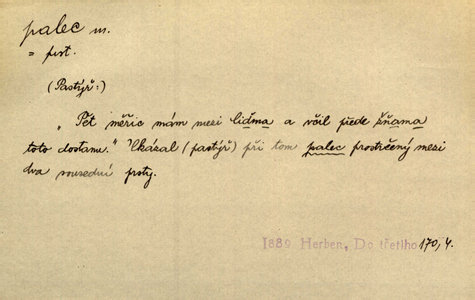 palec m.
= prst.
(Pastýř:)
„Pět měřic mám mezi liďma a včil přede žňama
toto dostanu." Ukázal (pastýř) při tom palec prostrčený mezi
dva sousední prsty.
1889 Herben, Do třetího 170, 4.